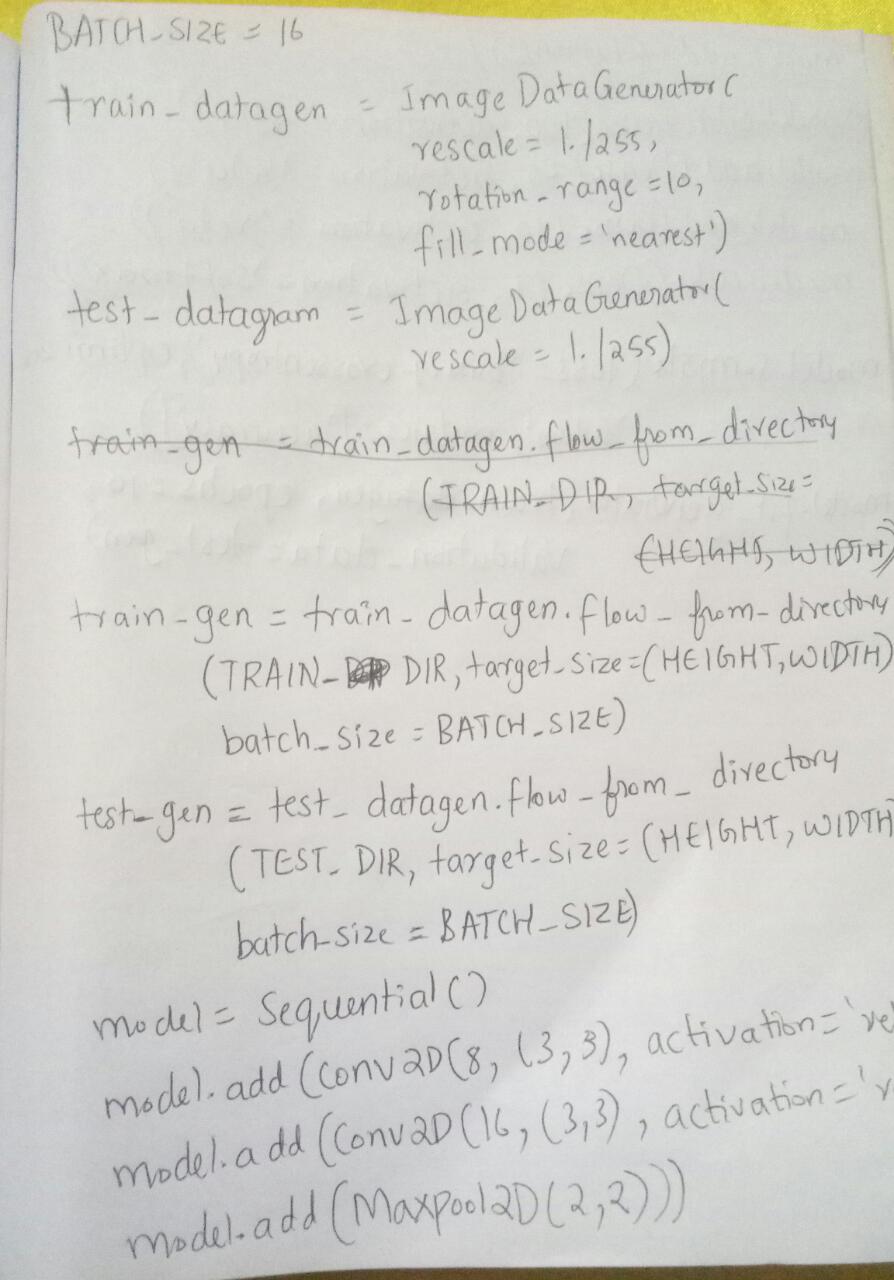 BATCH_SIZE = 16
train_datagen = ImageDataGenerator(
rescale = 1./255,
rotation_range = 10,
fill_mode = 'nearest')
test_datagram = ImageDataGenerator(
rescale = 1./255)
train_gen = train_datagen.flow_from_directory
(TRAIN_DIR, target_size=
(HEIGHT, WIDTH)
train_gen = train_datagen.flow_from_directory
(TRAIN_ DIR, target_size=(HEIGHT, WIDTH)
batch_size = BATCH_SIZE)
test_gen = test_datagen.flow_from_directory
(TEST_DIR, target_size=(HEIGHT, WIDTH
batch_size = BATCH_SIZE)
model = Sequential()
model.add(Conv2D(8, (3,3), activation='rel
model.add(Conv2D(16, (3,3), activation='r
model.add(Maxpool2D(2,2)))